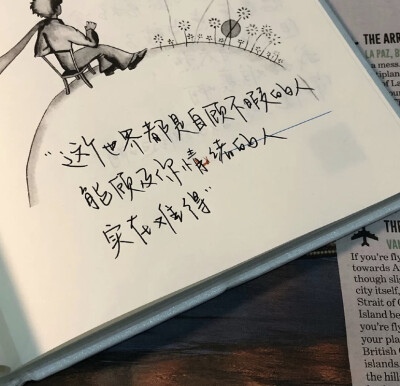 "这个世界都是自顾不暇的人
能顾及你情绪的人
实在难得"
THE ARR
LA PAZ, B
a mess.
tiplan
of La
must
THE
VAN
If you're fly
towards A
though slig
city itself,
Strait of G
Island be
you're fly
your pla
British C
islands.
the hill